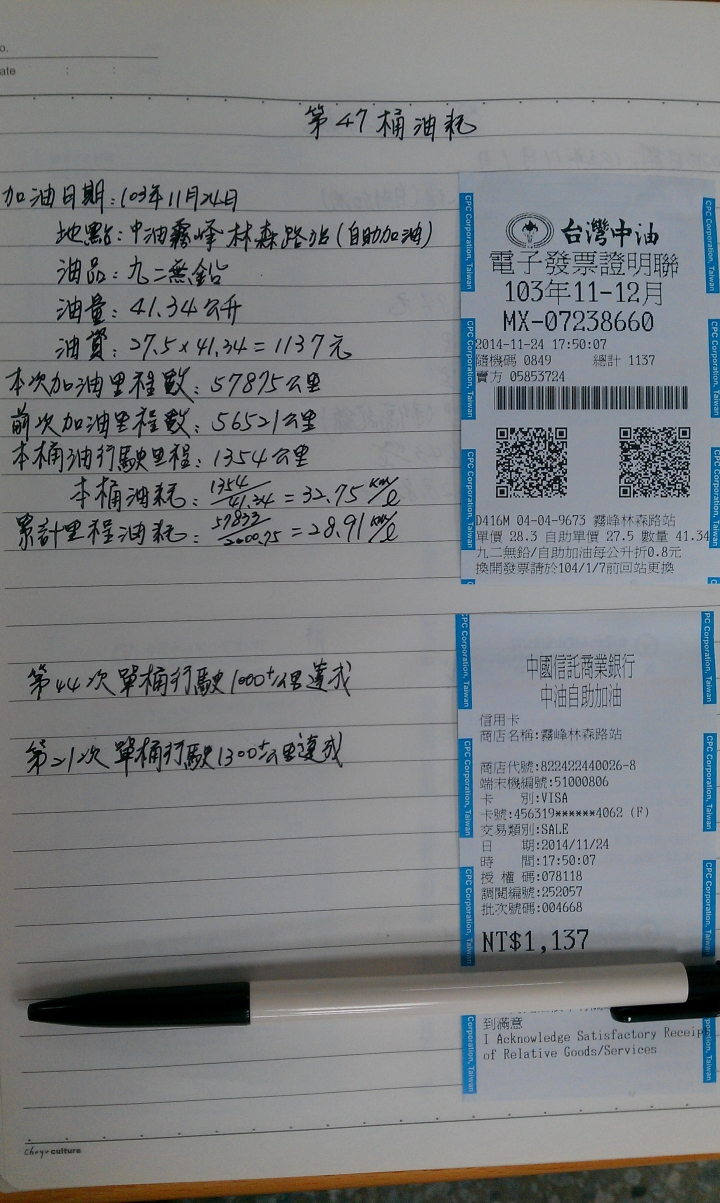 o.
ate : :
第47桶油耗
加油日期:103年11月24日
地點:中油霧峰林森路站(自助加油)
油品:九二無鉛
油量:41.34公升
油費:27.5×41.34=1137元
本次加油里程數:57875公里
前次加油里程數:56521公里
本桶油行駛里程:1354公里
本桶油耗:1354/41.34=32.75 km/ℓ
累計里程油耗:57833/2000.75=28.91 km/ℓ
第44次單桶行駛1000±公里達成
第21次單桶行駛1300±公里達成
台灣中油
電子發票證明聯
103年11-12月
MX-07238660
2014-11-24 17:50:07
隨機碼 0849 總計 1137
賣方 05853724
D416M 04-04-9673 霧峰林森路站
單價 28.3 自助單價 27.5 數量 41.34
九二無鉛/自助加油每公升折0.8元
換開發票請於104/1/7前回站更換
中國信託商業銀行
中油自助加油
信用卡
商店名稱:霧峰林森路站
商店代號:822422440026-8
端末機編號:51000806
卡 別:VISA
卡號:456319******4062 (F)
交易類別:SALE
日 期:2014/11/24
時 間:17:50:07
授 權 碼:078118
調閱編號:252057
批次號碼:004668
NT$1,137
到滿意
I Acknowledge Satisfactory Receip
of Relative Goods/Services
CPC Corporation, Taiwan
CPC Corporation, Taiwan
CPC Corporation, Taiwan
CPC Corporation, Taiwan
CPC Corporation, Taiwan
CPC Corporation, Taiwan
Corporation, Taiwan
culture